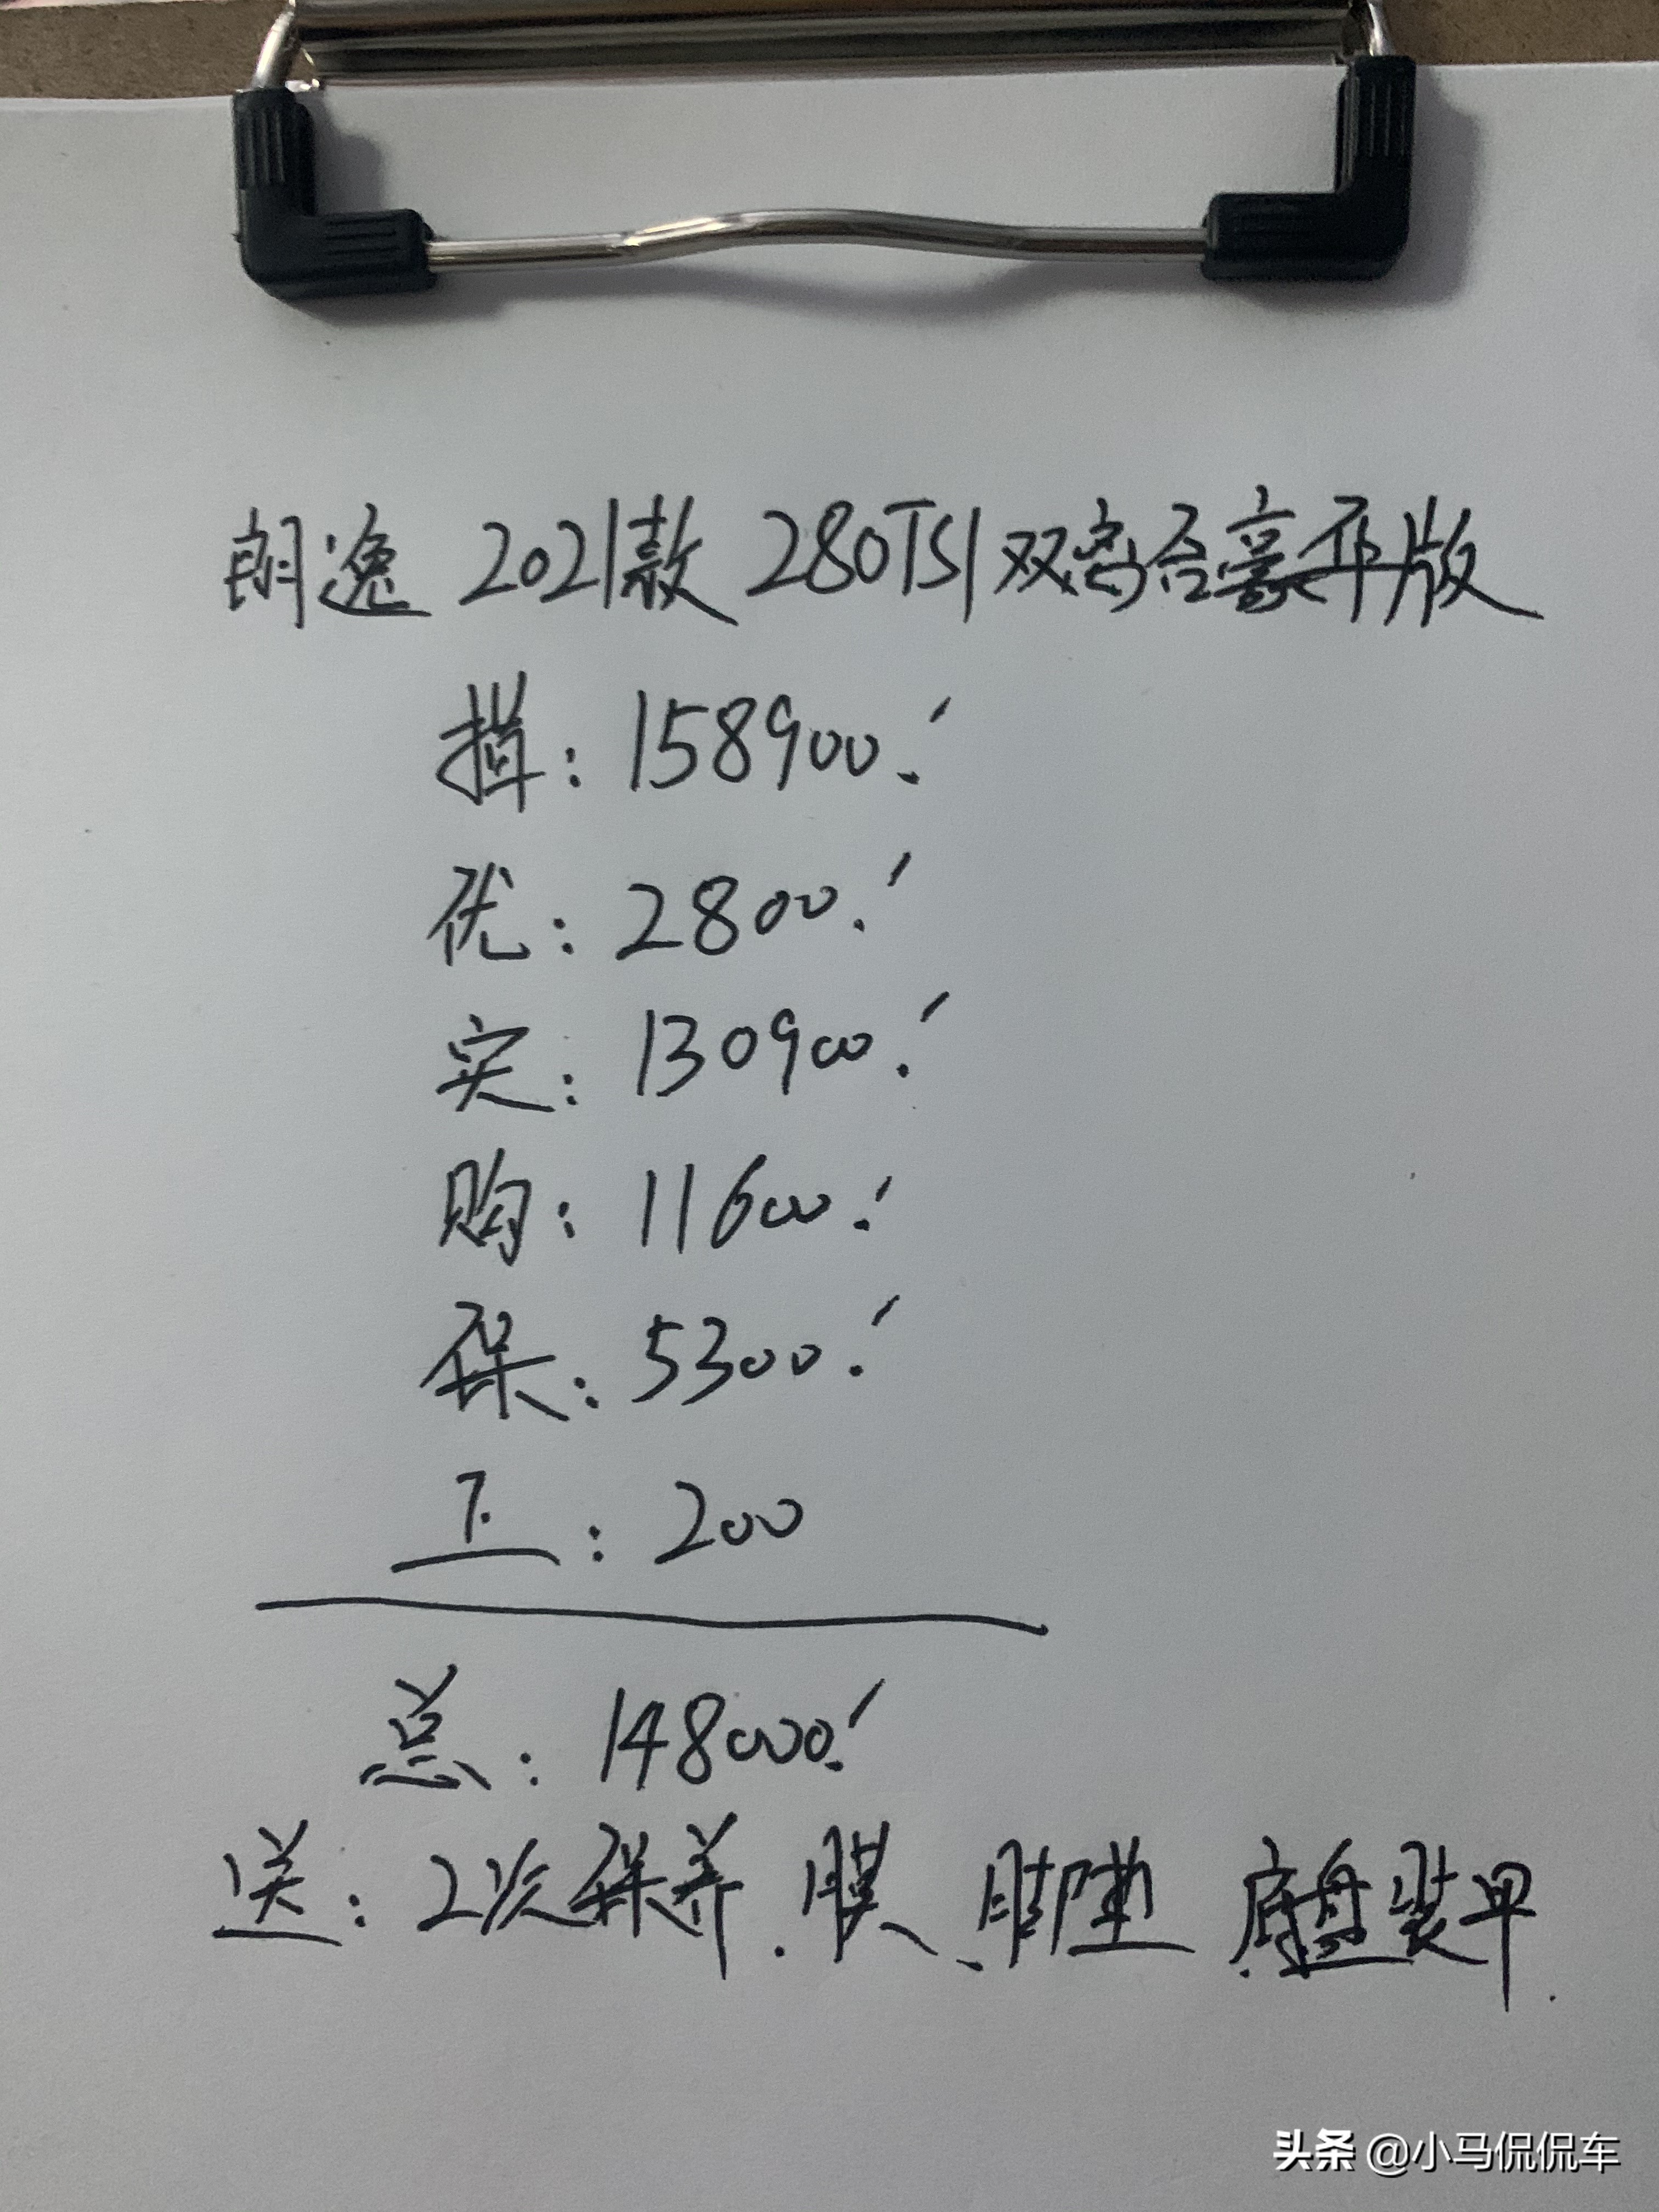 朗逸 2021款 280TSI 双离合豪华版
指: 158900.'
优: 2800.'
实: 130900.'
购: 11600.'
保: 5300.'
上: 200
总: 148000.'
送: 2次保养.膜、脚垫、底盘装甲.
头条 @小马侃侃车